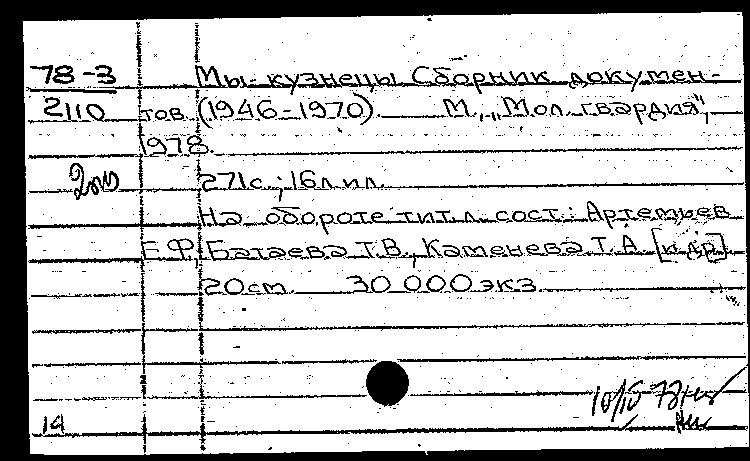 78-3 Мы-кузнецы Сборник докумен-
2110 тов (1946-1970). М., „Мол. гвардия",
1978.
271с.; 16л. ил.
На обороте тит. л. сост.: Артемьев
Е.Ф., Батаева Т.В., Каменева Т.А. [и др.]
20см 30 000 экз.
14